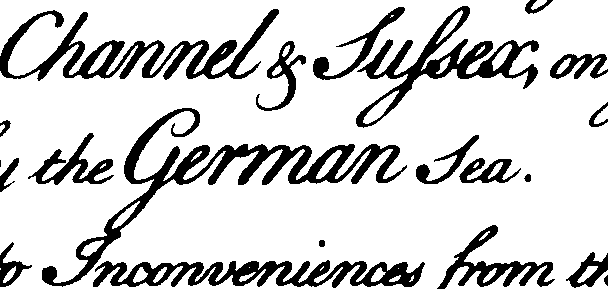 Channel & Sussex, on
y the German Sea.
to Inconveniences from th